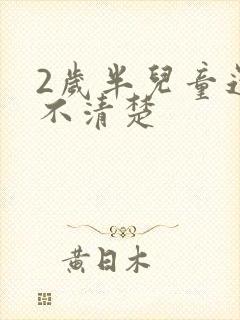 2歲半兒童
不清楚
黃日木